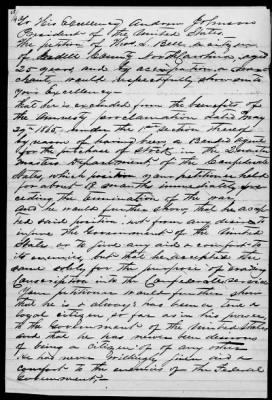 To His Excellency Andrew Johnson
President of the United States.
The petition of Thos. L. Bell a citizen
of Iredell County North Carolina, aged
25 years and by occupation a
would respectfully show unto
your Excellency—
that he is excluded from the benefits of
the Amnesty proclamation dated May
29th 1865. under the 1st section thereof
by reason of having been a Bonded Agent
for the purchase of in the Quarter
masters Department of the Confederate
States, which position your petitioner held
for about 18 months immediately pre
ceding the termination of the war.
and he would further show, that he accep
ted said position not from any desire to
injure the Government of the United
States or to give any aid or comfort to
its enemies, but that he accepted the
same solely for the purpose of
Conscription into the Confederate service.
Your petitioner would further show
that he is & always has been been a
loyal citizen, so far as in his power,
to the Government of the United States
and that he has never been desirous
of being a citizen of any other
& has never willingly given aid or
comfort to the enemies of the Federal
Government;—